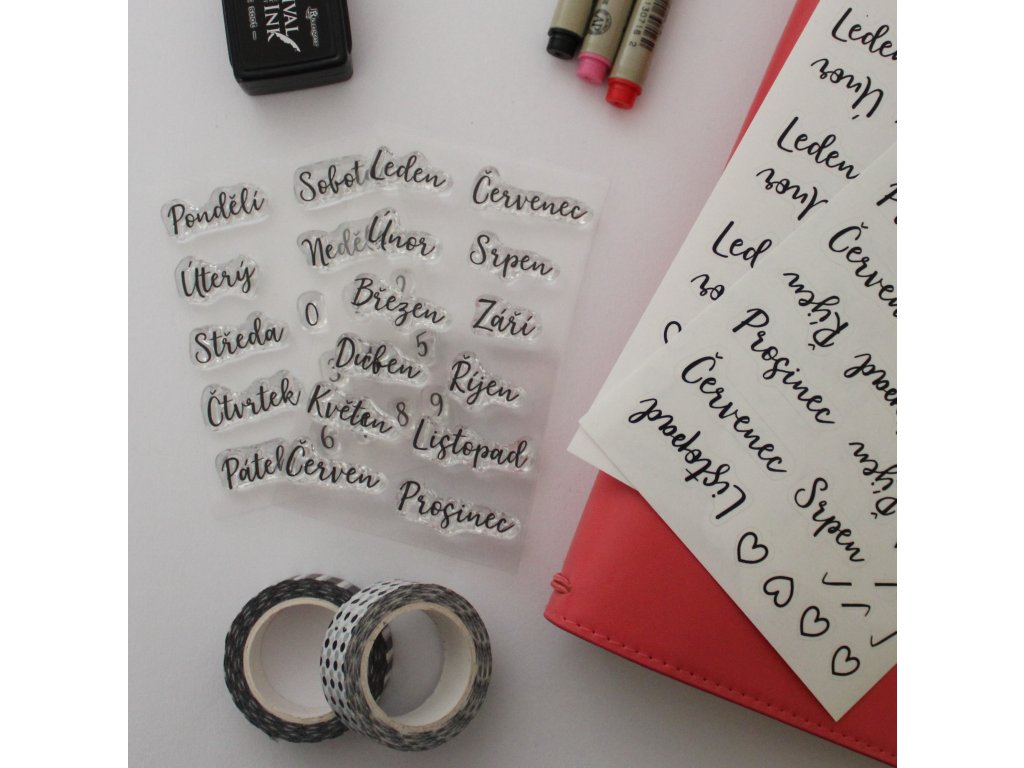 VAL
INK
Ranger
130718 2
Pondělí
Úterý
Středa
Čtvrtek
Sobot
Leden
Únor
Březen
Duben
Květen
Červen
Červenec
Srpen
Září
Říjen
Listopad
Prosinec
0
5
3
8
9
6
Leden
Únor
Leden
Únor
Led
or
Červenec
Říjen
Prosinec
Červenec
Listopad
Srpen
Říjen